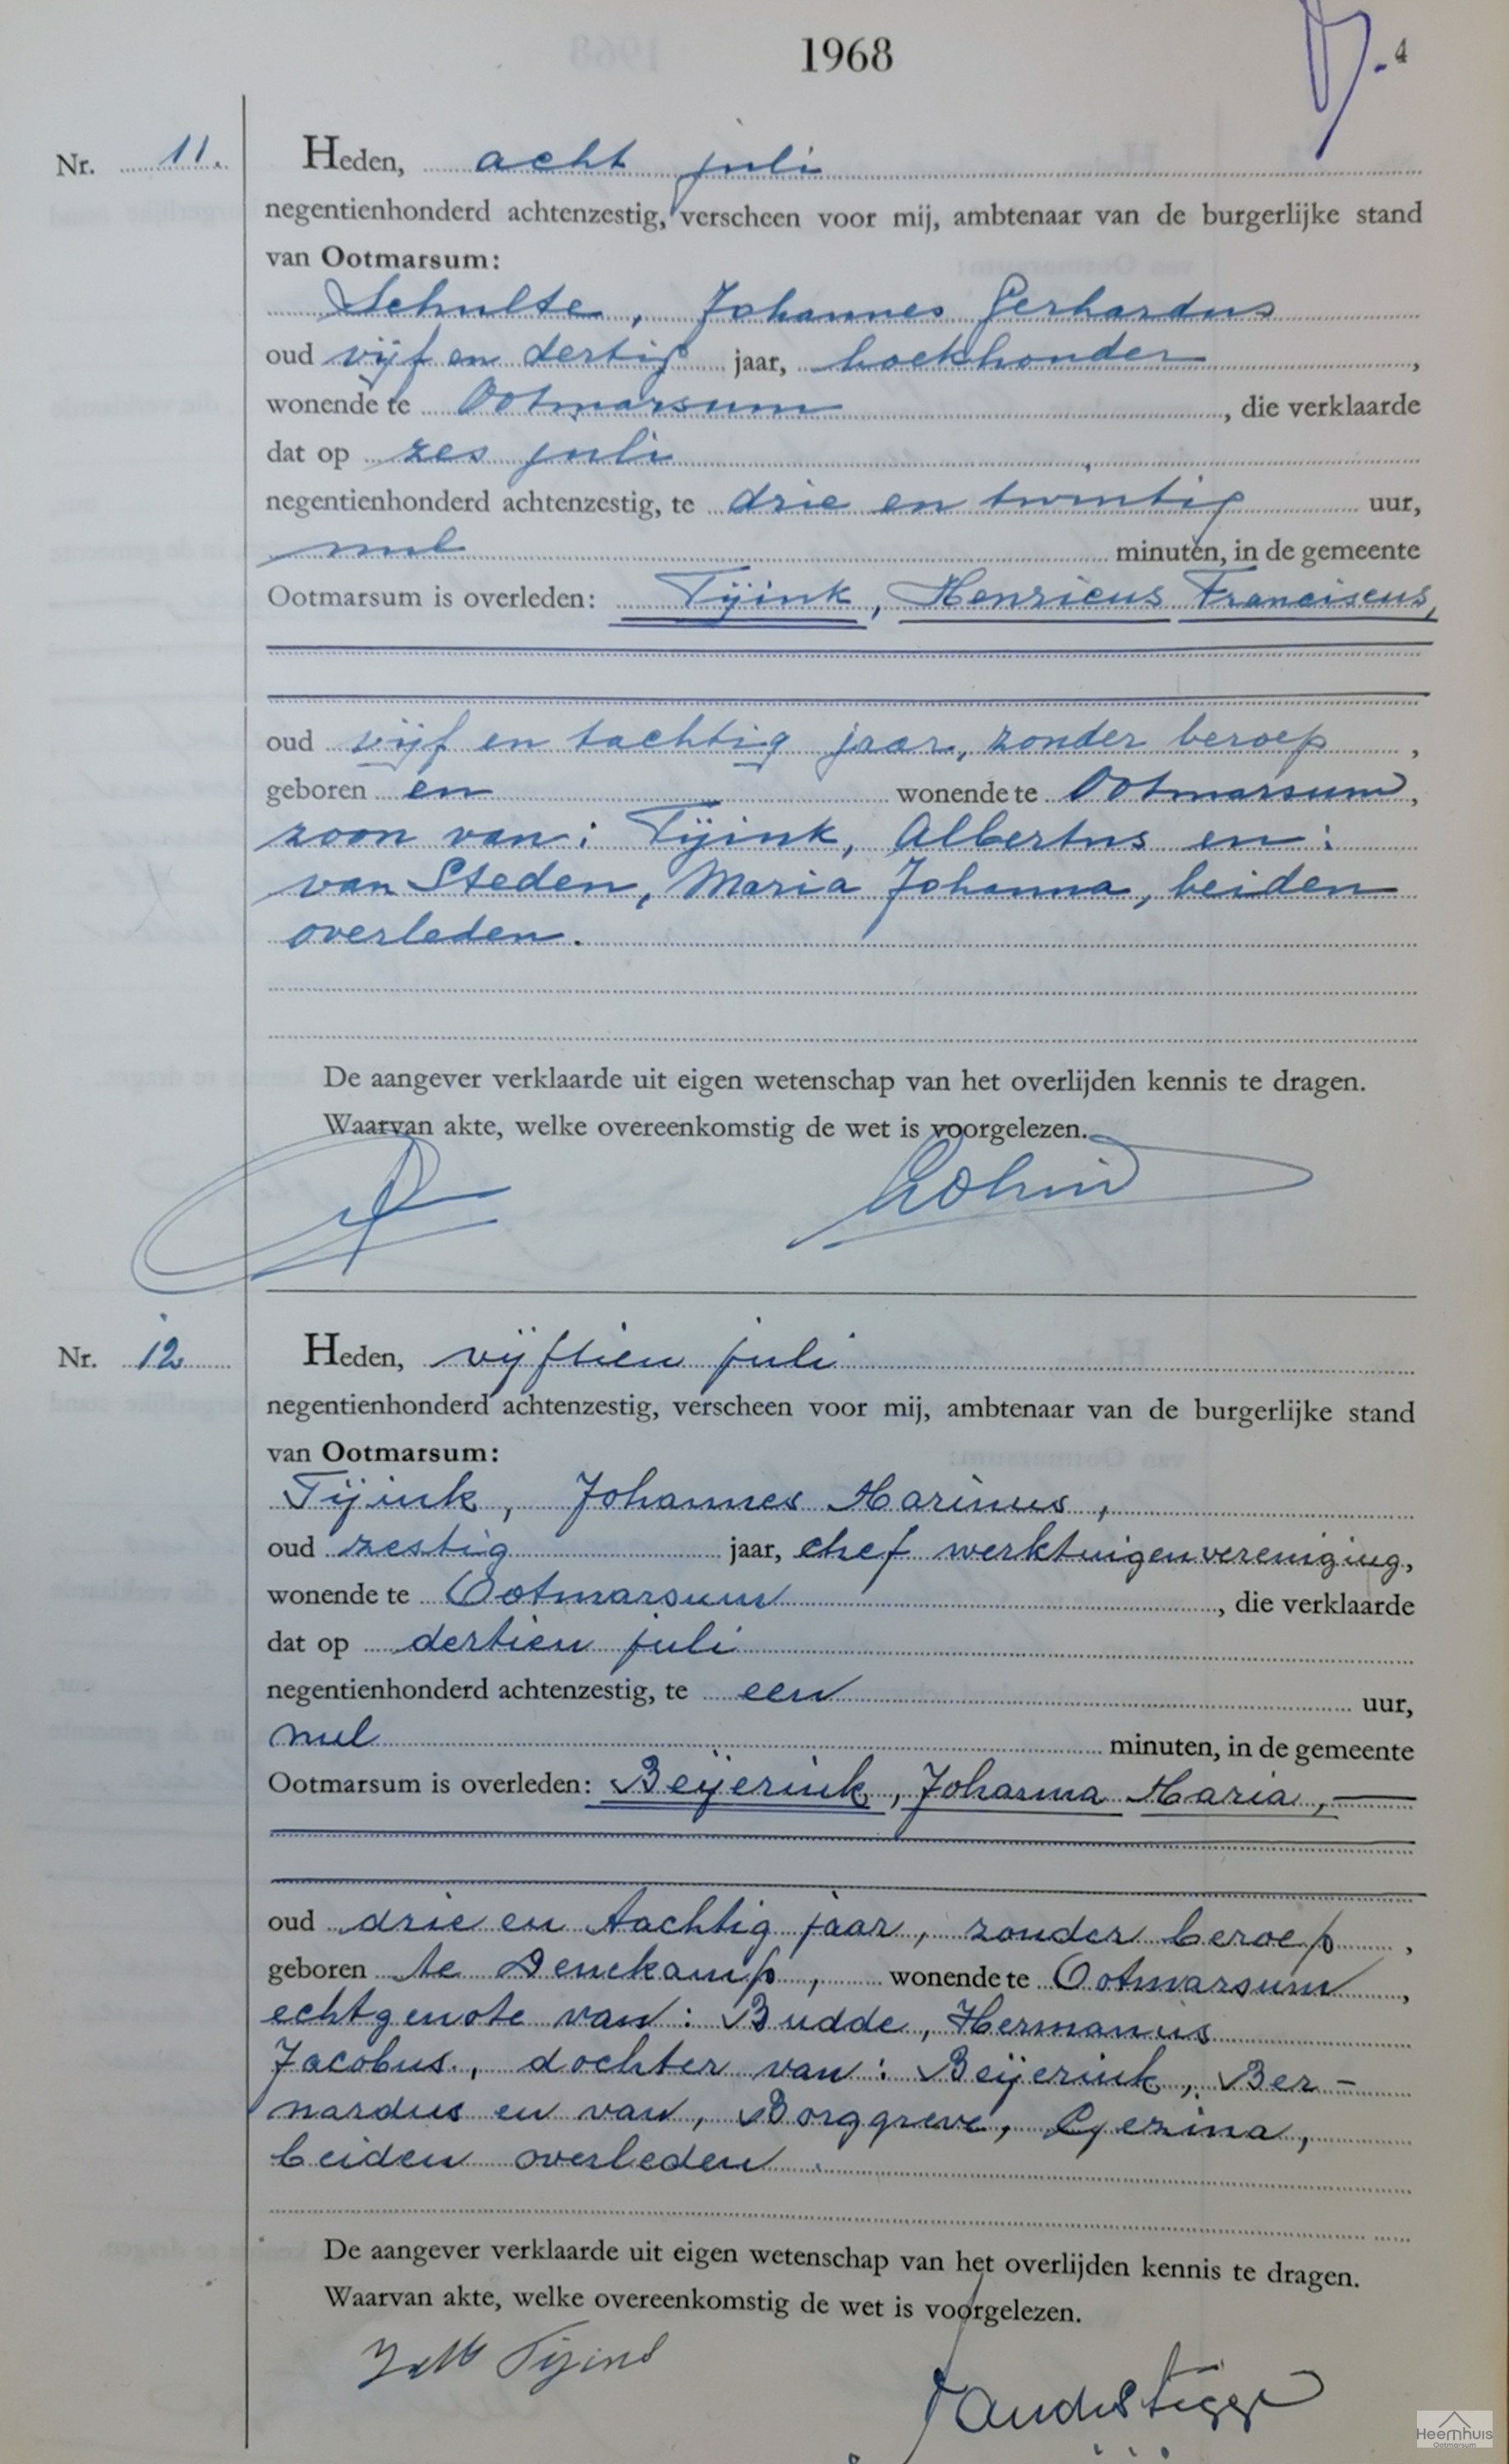 1968
4
Nr. 11.
Heden, acht juli
negentienhonderd achtenzestig, verscheen voor mij, ambtenaar van de burgerlijke stand
van Ootmarsum:
Schulte, Johannes Gerhardus
oud vijf en dertig jaar, boekhouder,
wonende te Ootmarsum, die verklaarde
dat op zes juli
negentienhonderd achtenzestig, te drie en twintig uur,
nul minuten, in de gemeente
Ootmarsum is overleden: Tijink, Henricus Franciscus,
oud vijf en tachtig jaar, zonder beroep,
geboren en wonende te Ootmarsum,
zoon van: Tijink, Albertus en:
van Steden, Maria Johanna, beiden
overleden.
De aangever verklaarde uit eigen wetenschap van het overlijden kennis te dragen.
Waarvan akte, welke overeenkomstig de wet is voorgelezen.
Nr. 12
Heden, vijftien juli
negentienhonderd achtenzestig, verscheen voor mij, ambtenaar van de burgerlijke stand
van Ootmarsum:
Tijink, Johannes Marinus,
oud zestig jaar, chef werktuigenvereniging,
wonende te Ootmarsum, die verklaarde
dat op dertien juli
negentienhonderd achtenzestig, te een uur,
nul minuten, in de gemeente
Ootmarsum is overleden: Beijerink, Johanna Maria,
oud drie en tachtig jaar, zonder beroep,
geboren te Denekamp, wonende te Ootmarsum,
echtgenote van: Budde, Hermannus
Jacobus, dochter van: Beijerink, Ber-
nardus en van, Borggreve, Gezina,
beiden overleden.
De aangever verklaarde uit eigen wetenschap van het overlijden kennis te dragen.
Waarvan akte, welke overeenkomstig de wet is voorgelezen.
Tijink
Heemhuis
Ootmarsum